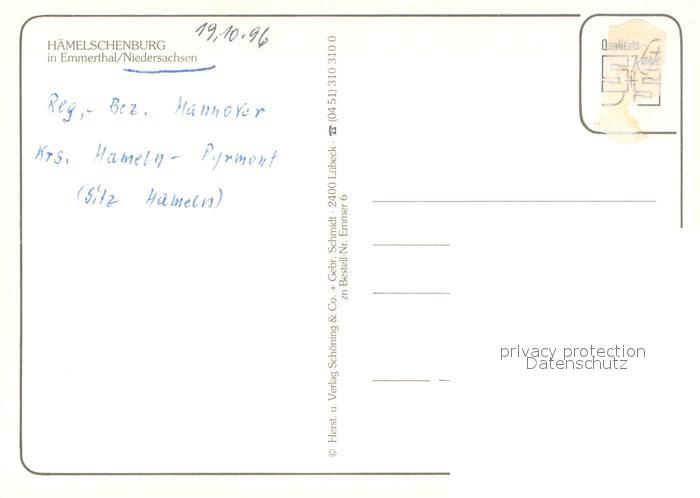 19.10.96
HÄMELSCHENBURG
in Emmerthal/Niedersachsen
Reg.- Bez. Hannover
Krs. Hameln - Pyrmont
(Sitz Hameln)
© Herst. u. Verlag Schöning & Co. + Gebr. Schmidt · 2400 Lübeck · ☎ (04 51) 310 310 0
zn Bestell-Nr. Emmer 6
Qualitäts-
Karte
privacy protection
Datenschutz